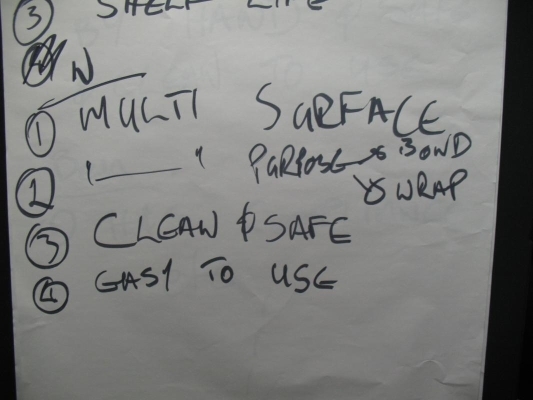 ③ SHELF LIFE
N
① MULTI SURFACE
② "——" PURPOSE → BOND
↘ WRAP
③ CLEAN & SAFE
④ EASY TO USE